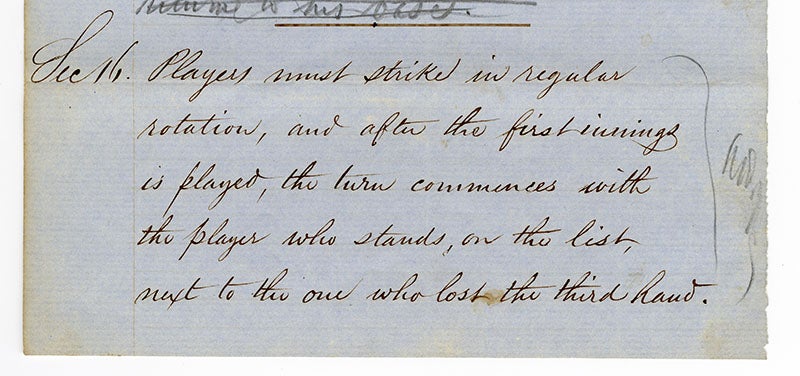 returning to his base.
Sec 16. Players must strike in regular
rotation, and after the first innings
is played, the turn commences with
the player who stands, on the list,
next to the one who lost the third hand.